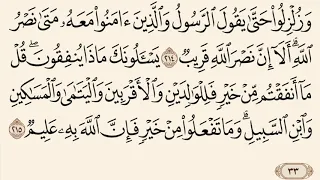 وَزُلْزِلُوا۟ حَتَّىٰ يَقُولَ ٱلرَّسُولُ وَٱلَّذِينَ ءَامَنُوا۟ مَعَهُۥ مَتَىٰ نَصْرُ
ٱللَّهِ ۗ أَلَآ إِنَّ نَصْرَ ٱللَّهِ قَرِيبٌ ٢١٤ يَسْـَٔلُونَكَ مَاذَا يُنفِقُونَ ۖ قُلْ
مَآ أَنفَقْتُم مِّنْ خَيْرٍ فَلِلْوَٰلِدَيْنِ وَٱلْأَقْرَبِينَ وَٱلْيَتَٰمَىٰ وَٱلْمَسَٰكِينِ
وَٱبْنِ ٱلسَّبِيلِ ۗ وَمَا تَفْعَلُوا۟ مِنْ خَيْرٍ فَإِنَّ ٱللَّهَ بِهِۦ عَلِيمٌ ٢١٥
٣٣